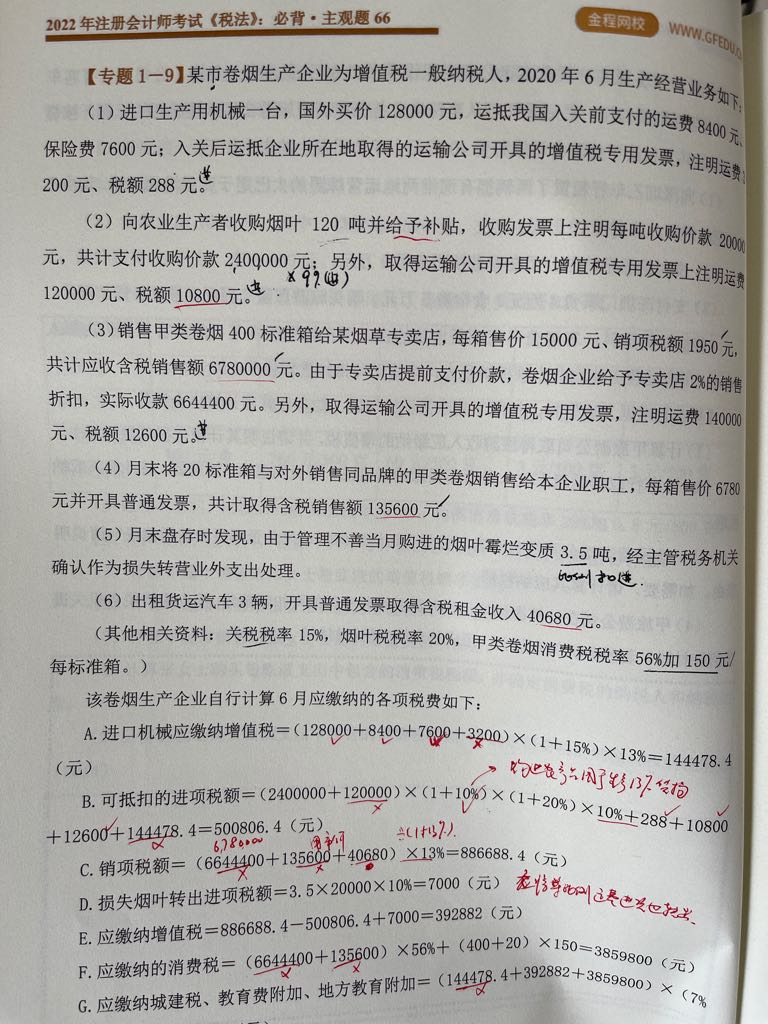 2022 年注册会计师考试《税法》：必背·主观题 66
金程网校 WWW.GFEDU.C
【专题 1—9】某市卷烟生产企业为增值税一般纳税人，2020 年 6 月生产经营业务如下：
（1）进口生产用机械一台，国外买价 128000 元，运抵我国入关前支付的运费 8400 元、
保险费 7600 元；入关后运抵企业所在地取得的运输公司开具的增值税专用发票，注明运费 3
200 元、税额 288 元。进
（2）向农业生产者收购烟叶 120 吨并给予补贴，收购发票上注明每吨收购价款 20000
元，共计支付收购价款 2400000 元；另外，取得运输公司开具的增值税专用发票上注明运费
×9%(进)
120000 元、税额 10800 元。进
（3）销售甲类卷烟 400 标准箱给某烟草专卖店，每箱售价 15000 元、销项税额 1950 元，
共计应收含税销售额 6780000 元。由于专卖店提前支付价款，卷烟企业给予专卖店 2%的销售
折扣，实际收款 6644400 元。另外，取得运输公司开具的增值税专用发票，注明运费 140000
元、税额 12600 元。进
（4）月末将 20 标准箱与对外销售同品牌的甲类卷烟销售给本企业职工，每箱售价 6780
元并开具普通发票，共计取得含税销售额 135600 元。
（5）月末盘存时发现，由于管理不善当月购进的烟叶霉烂变质 3.5 吨，经主管税务机关
确认作为损失转营业外支出处理。
（6）出租货运汽车 3 辆，开具普通发票取得含税租金收入 40680 元。
（其他相关资料：关税税率 15%，烟叶税税率 20%，甲类卷烟消费税税率 56%加 150 元/
每标准箱。）
该卷烟生产企业自行计算 6 月应缴纳的各项税费如下：
A. 进口机械应缴纳增值税＝（128000＋8400＋7600＋3200）×（1＋15%）×13%＝144478.4
（元）
B. 可抵扣的进项税额＝（2400000＋120000）×（1＋10%）×（1＋20%）×10%＋288＋10800
＋12600＋144478.4＝500806.4（元）
6780000 ÷(1+13%)
C. 销项税额＝（6644400＋135600＋40680）×13%＝886688.4（元）
D. 损失烟叶转出进项税额＝3.5×20000×10%＝7000（元）
E. 应缴纳增值税＝886688.4－500806.4＋7000＝392882（元）
F. 应缴纳的消费税＝（6644400＋135600）×56%＋（400＋20）×150＝3859800（元）
G. 应缴纳城建税、教育费附加、地方教育附加＝（144478.4＋392882＋3859800）×（7%